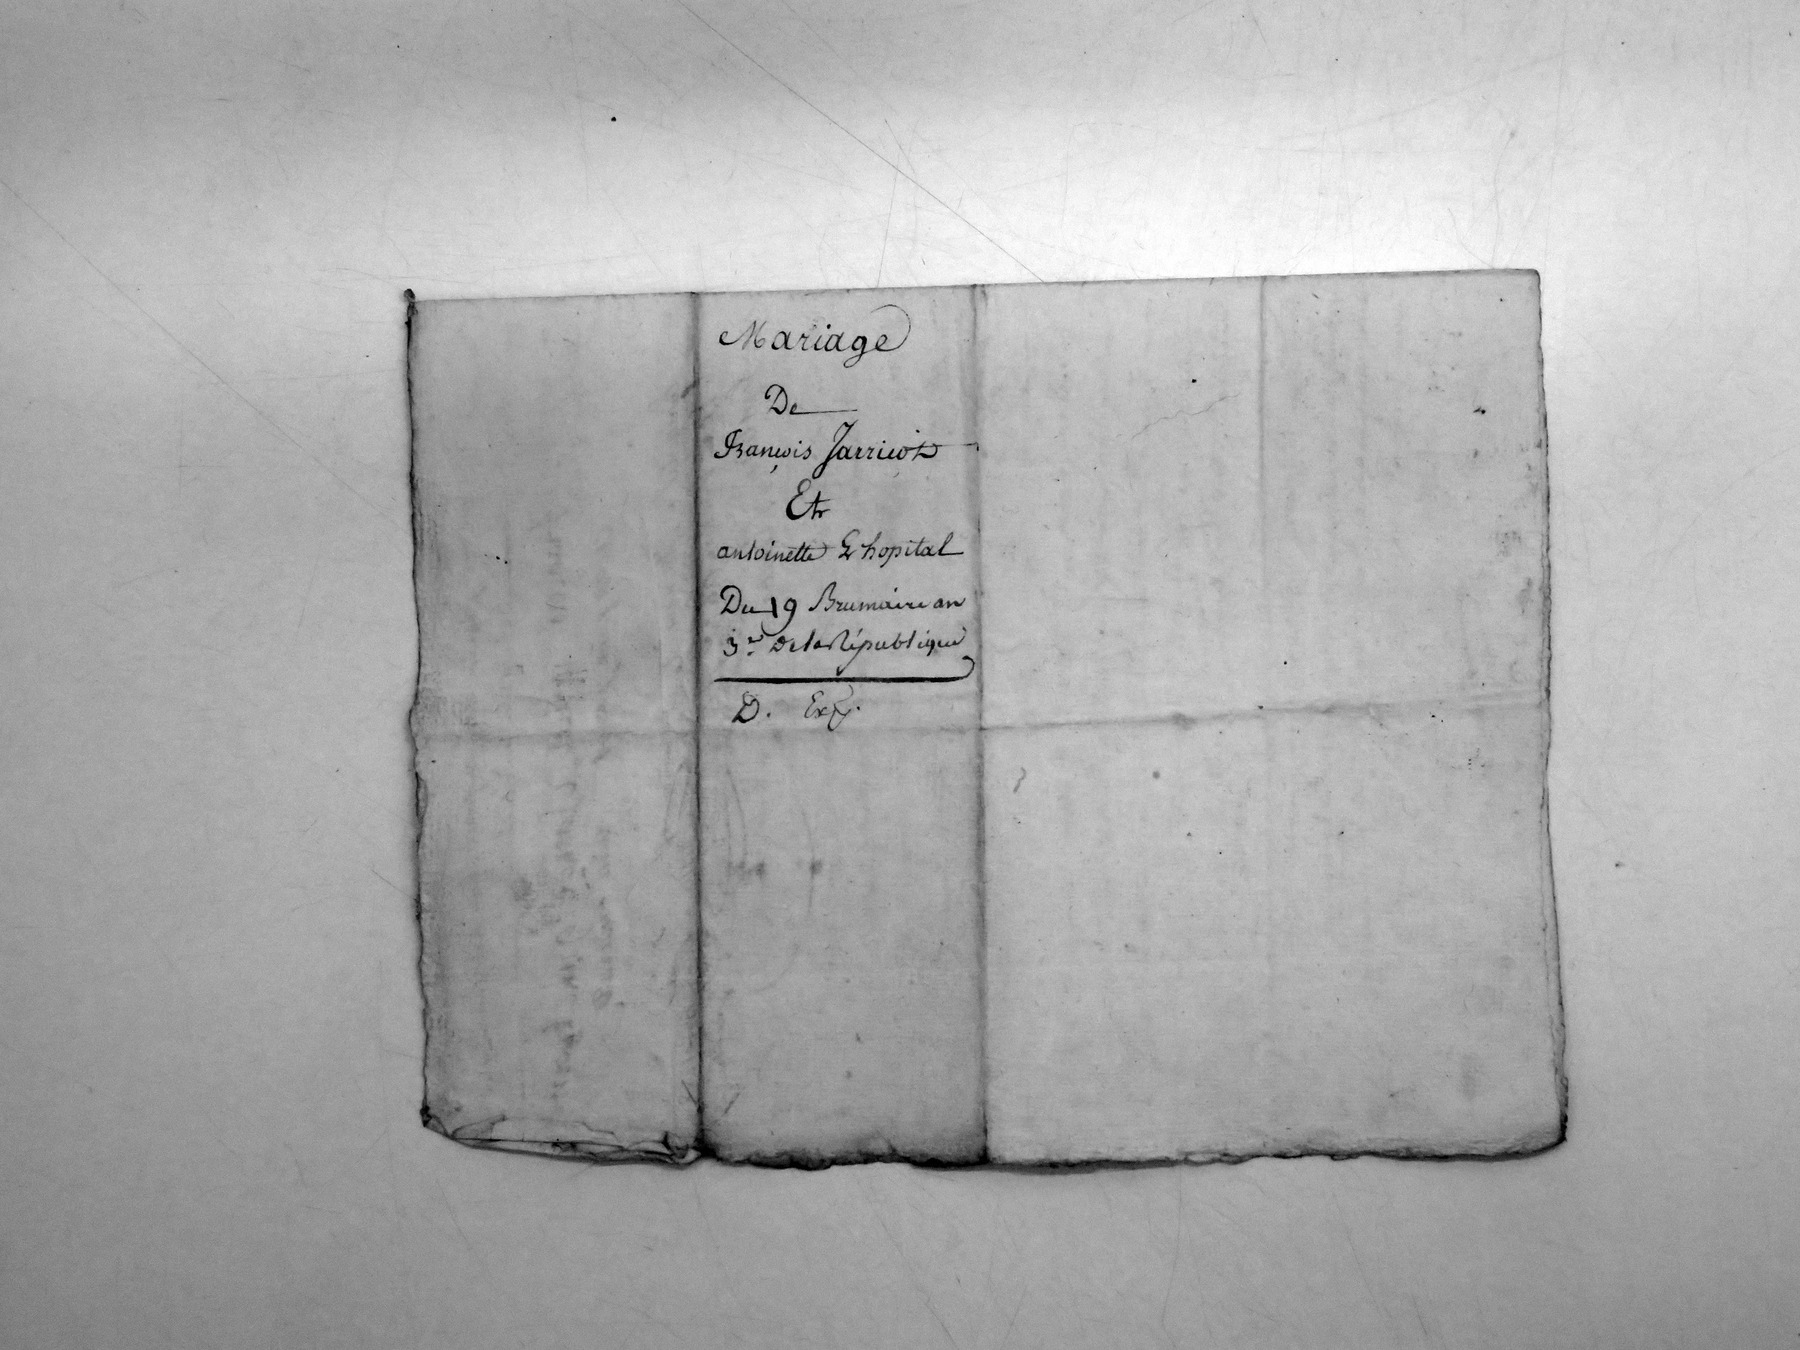 Mariage
De
François Jarricot
Et
antoinette Lhopital
Du 19 Brumaire an
3.e De la République
D. Exp.